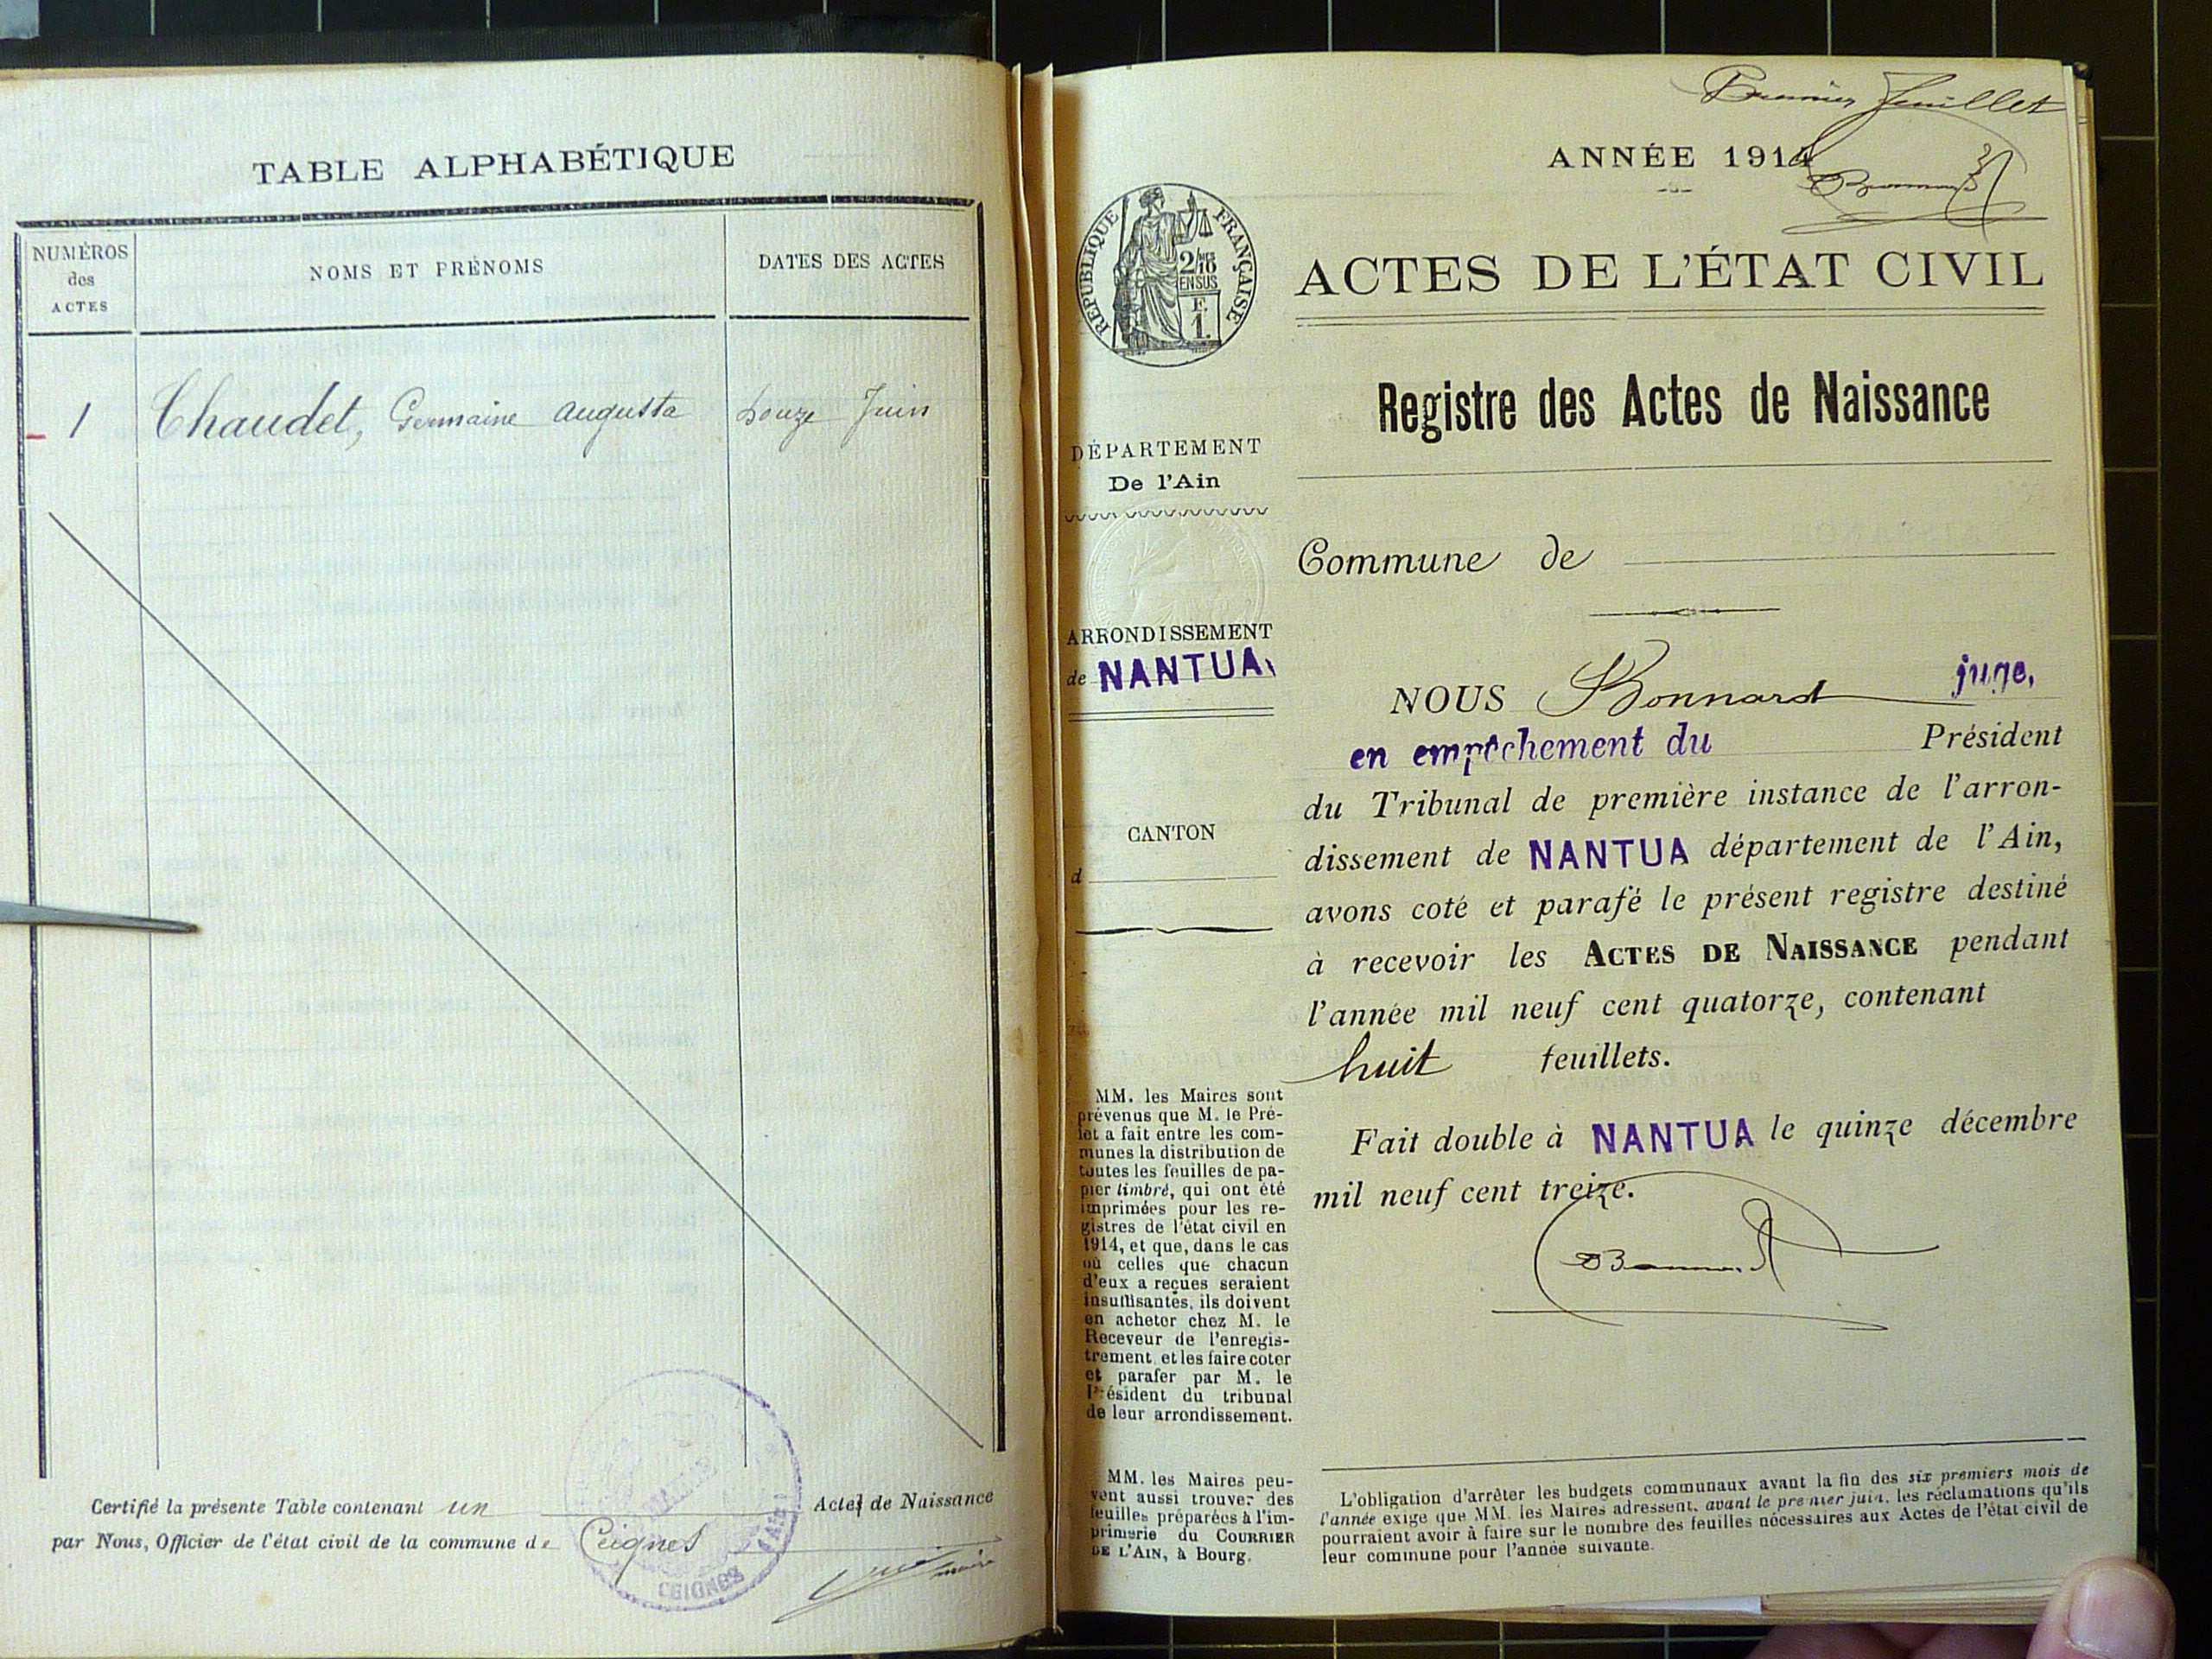 TABLE ALPHABÉTIQUE
NUMÉROS
des
ACTES
NOMS ET PRÉNOMS
DATES DES ACTES
1 Chaudet, Germaine Augusta douze Juin
Certifié la présente Table contenant un Actes de Naissance
par Nous, Officier de l'état civil de la commune de Ceignes
maire
MAIRIE
CEIGNES
(AIN)
Premier feuillet
ANNÉE 1914
Bonnard
RÉPUBLIQUE FRANÇAISE
2/10
EN SUS
F.
1.
ACTES DE L'ÉTAT CIVIL
Registre des Actes de Naissance
DÉPARTEMENT
De l'Ain
Commune de
ARRONDISSEMENT
de NANTUA
CANTON
d
NOUS Bonnard juge,
en empêchement du Président
du Tribunal de première instance de l'arron-
dissement de NANTUA département de l'Ain,
avons coté et parafé le présent registre destiné
à recevoir les ACTES DE NAISSANCE pendant
l'année mil neuf cent quatorze, contenant
huit feuillets.
Fait double à NANTUA le quinze décembre
mil neuf cent treize.
Bonnard
MM. les Maires sont
prévenus que M. le Pré-
fet a fait entre les com-
munes la distribution de
toutes les feuilles de pa-
pier timbré, qui ont été
imprimées pour les re-
gistres de l'état civil en
1914, et que, dans le cas
où celles que chacun
d'eux a reçues seraient
insuffisantes, ils doivent
en acheter chez M. le
Receveur de l'enregis-
trement et les faire coter
et parafer par M. le
Président du tribunal
de leur arrondissement.
MM. les Maires peu-
vent aussi trouver des
feuilles préparées à l'im-
primerie du COURRIER
DE L'AIN, à Bourg.
L'obligation d'arrêter les budgets communaux avant la fin des six premiers mois de
l'année exige que MM. les Maires adressent, avant le premier juin, les réclamations qu'ils
pourraient avoir à faire sur le nombre des feuilles nécessaires aux Actes de l'état civil de
leur commune pour l'année suivante.